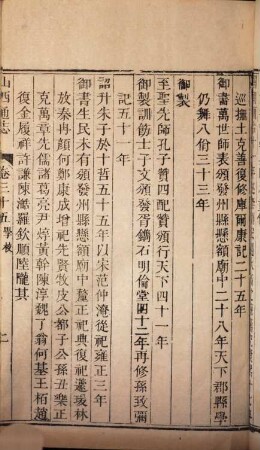 巡撫土克善復修庫爾康記二十五年
御書萬世師表頒發州縣懸額廟中二十八年天下郡縣學
仍舞八佾三十三年
御製
至聖先師孔子贊四配贊頒行天下四十一年
御製訓飭士子文頒發胥鐫石明倫堂四十二年再修孫致彌
記五十一年
詔升朱子於十哲五十五年以宋范仲淹從祀雍正三年
御書生民未有頒發州縣懸額廟中釐正祀典復祀蘧瑗林
放秦冉顏何鄭康成增祀先賢牧皮公都子公孫丑樂正
克萬章先儒諸葛亮尹焞黃幹陳淳魏了翁何基王柏趙
復金履祥許謙陳澔羅欽順陸隴其
山西通志
卷三十五學校